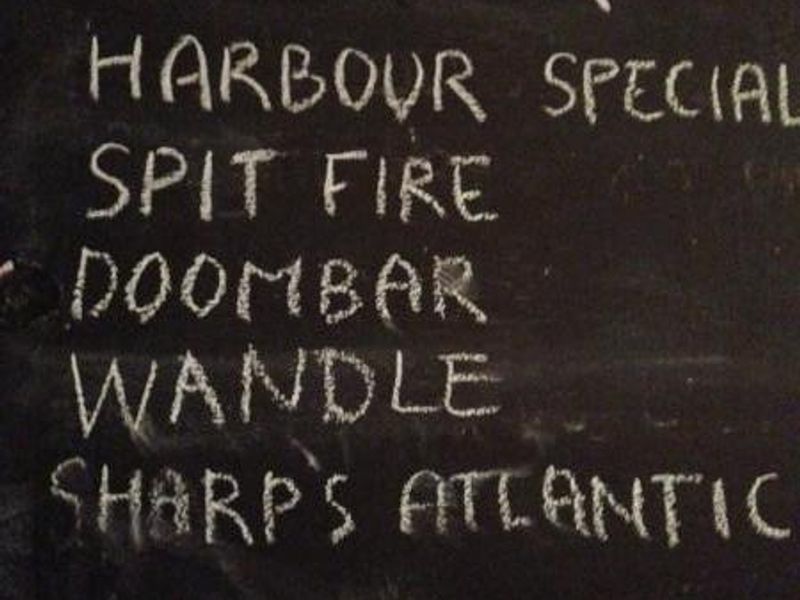 HARBOUR SPECIAL
SPIT FIRE
DOOMBAR
WANDLE
SHARPS ATLANTIC